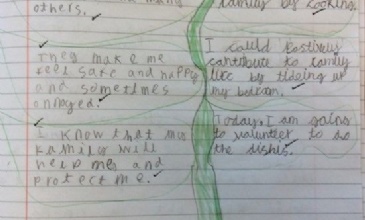 others.
They make me
feel safe and happy
and sometimes
I know that my
family will
help me and
protect me.
family by cooking.
I could positively
contribute to family
life by tiding up
my
Today, I am going
to volunteer to do
the dishes.